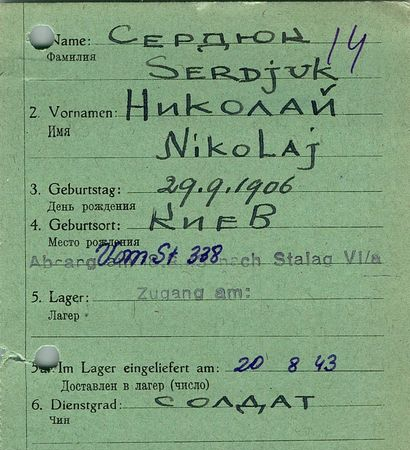 Name: СЕРДЮК 14
Фамилия
SERDjUK
2. Vornamen: НИКОЛАЙ
Имя
NikoLaj
3. Geburtstag: 29.9.1906
День рождения
4. Geburtsort: КИЕВ
Место рождения
Vom St. 338
nach Stalag VI/a
Zugang am:
5. Lager:
Лагер
Im Lager eingeliefert am: 20 8 43
Доставлен в лагер (число)
6. Dienstgrad: СОЛДАТ
Чин